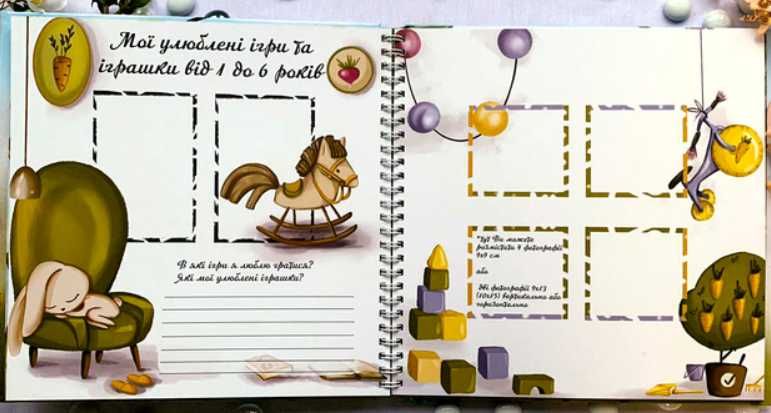 Мої улюблені ігри та
іграшки від 1 до 6 років
В які ігри я люблю гратися?
Які мої улюблені іграшки?
*Тут Ви можете
розмістити 4 фотографії
9х9 см
або
дві фотографії 9х13
(10х15) вертикально або
горизонтально